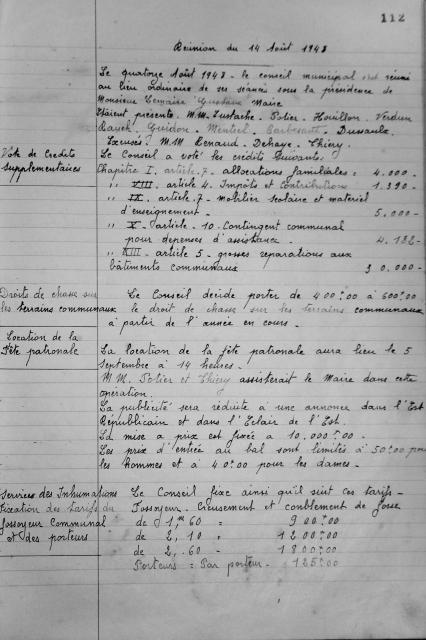 112
Réunion du 14 Août 1948
Le quatorze Août 1948 - le conseil municipal est réuni
au lieu ordinaire de ses séances sous la présidence de
Monsieur Lemaire Gustave Maire
Etaient présents. M.M. Eustache. Potier. Houillon. Verdun
Rauch. Guidon. Menteil. Barbesant. Dussaulx.
Excusés: M.M Renard. Dehaye. Thiéry.
Vote de Crédits
supplémentaires
Le Conseil a voté les crédits suivants.
Chapitre I, article 7 - allocations familiales : 4.000 -
" VIII. article 4. Impots et contributions 1.390 -
" IX. article 7 - mobilier scolaire et matériel
d'enseignement - 5.000 -
" X - article - 10. Contingent communal
pour dépenses d'assistance - 4.132 -
" XIII - article 5 - grosses réparations aux
bâtiments communaux 30.000 -
Droits de chasse sur
les terrains communaux
Le Conseil décide porter de 400:00 à 500:00
le droit de chasse sur les terrains communaux
à partir de l'année en cours -
Location de la
Fête patronale
La location de la fête patronale aura lieu le 5
septembre à 14 heures -
M M. Potier et Thiéry assisterait le Maire dans cette
opération.
La publicité sera réduite à une annonce dans l'Est
Républicain et dans l'Eclair de l'Est.
La mise à prix est fixée à 10.000:00 -
Les prix d'entrée au bal sont limités à 50:00 pour
les hommes et à 40:00 pour les dames -
Services des Inhumations
Fixation des tarifs du
fossoyeur Communal
et des porteurs
Le Conseil fixe ainsi qu'il suit ces tarifs -
Fossoyeur. Creusement et comblement de fosse
de 1,m 60 = 900:00
de 2, 10 = 1200:00
de 2, 60 - 1800:00
Porteurs = Par porteur - 125:00